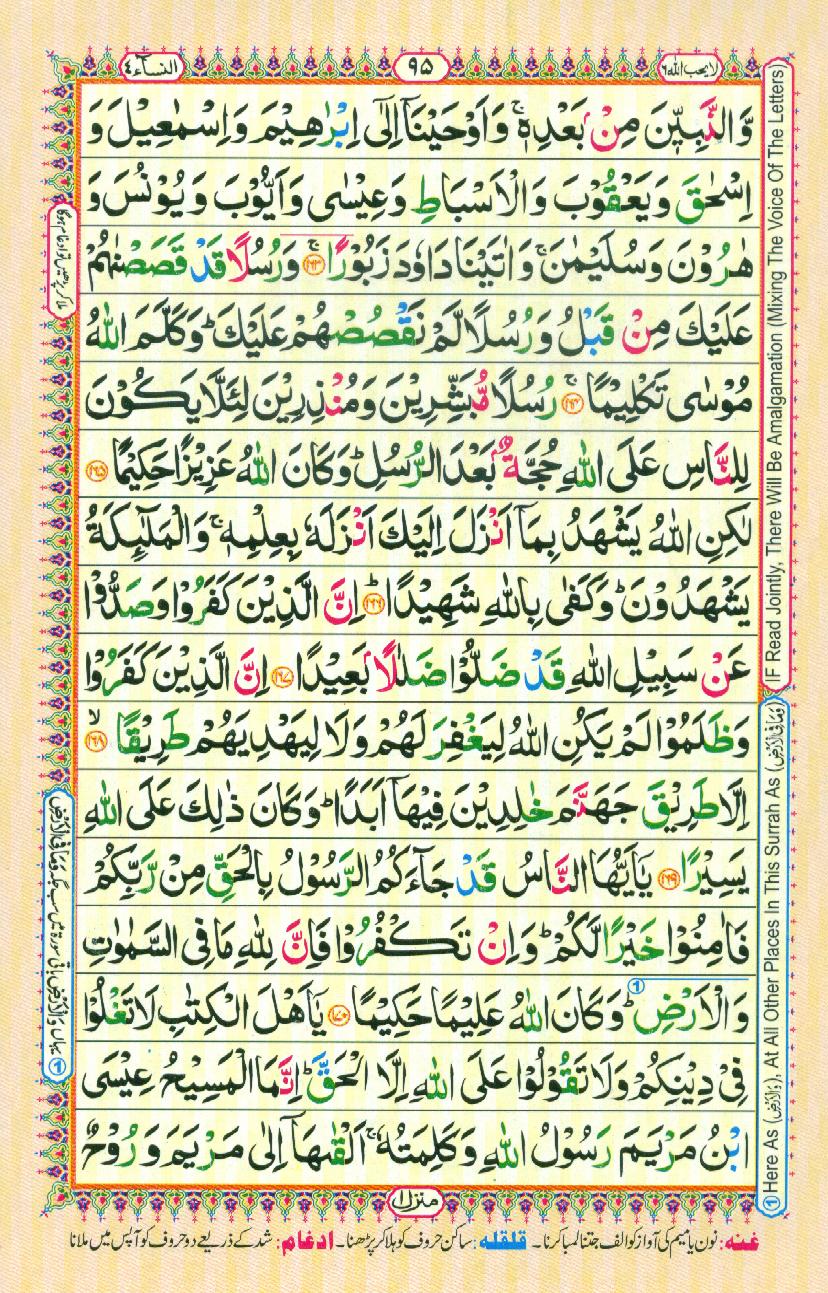 لا يحب الله ٦
٩٥
النسآء ٤
وَّالنَّبِيّٖنَ مِنْۢ بَعْدِهٖ ۚ وَاَوْحَيْنَاۤ اِلٰٓى اِبْرٰهِيْمَ وَاِسْمٰعِيْلَ وَ
اِسْحٰقَ وَيَعْقُوْبَ وَالْاَسْبَاطِ وَعِيْسٰى وَاَيُّوْبَ وَيُوْنُسَ وَ
هٰرُوْنَ وَسُلَيْمٰنَ ۚ وَاٰتَيْنَا دَاوٗدَ زَبُوْرًا ۚ ﴿۱۶۳﴾ وَرُسُلًا قَدْ قَصَصْنٰهُمْ
عَلَيْكَ مِنْ قَبْلُ وَرُسُلًا لَّمْ نَقْصُصْهُمْ عَلَيْكَ ؕ وَكَلَّمَ اللّٰهُ
مُوْسٰى تَكْلِيْمًا ۚ ﴿۱۶۴﴾ رُسُلًا مُّبَشِّرِيْنَ وَمُنْذِرِيْنَ لِئَلَّا يَكُوْنَ
لِلنَّاسِ عَلَى اللّٰهِ حُجَّةٌۢ بَعْدَ الرُّسُلِ ؕ وَكَانَ اللّٰهُ عَزِيْزًا حَكِيْمًا ﴿۱۶۵﴾
لٰكِنِ اللّٰهُ يَشْهَدُ بِمَاۤ اَنْزَلَ اِلَيْكَ اَنْزَلَهٗ بِعِلْمِهٖ ۚ وَالْمَلٰٓئِكَةُ
يَشْهَدُوْنَ ؕ وَكَفٰى بِاللّٰهِ شَهِيْدًا ؕ ﴿۱۶۶﴾ اِنَّ الَّذِيْنَ كَفَرُوْا وَصَدُّوْا
عَنْ سَبِيْلِ اللّٰهِ قَدْ ضَلُّوْا ضَلٰلًاۢ بَعِيْدًا ﴿۱۶۷﴾ اِنَّ الَّذِيْنَ كَفَرُوْا
وَظَلَمُوْا لَمْ يَكُنِ اللّٰهُ لِيَغْفِرَ لَهُمْ وَلَا لِيَهْدِيَهُمْ طَرِيْقًا ۙ ﴿۱۶۸﴾
اِلَّا طَرِيْقَ جَهَنَّمَ خٰلِدِيْنَ فِيْهَاۤ اَبَدًا ؕ وَكَانَ ذٰلِكَ عَلَى اللّٰهِ
يَسِيْرًا ﴿۱۶۹﴾ يٰۤاَيُّهَا النَّاسُ قَدْ جَآءَكُمُ الرَّسُوْلُ بِالْحَقِّ مِنْ رَّبِّكُمْ
فَاٰمِنُوْا خَيْرًا لَّكُمْ ؕ وَاِنْ تَكْفُرُوْا فَاِنَّ لِلّٰهِ مَا فِى السَّمٰوٰتِ
وَالْاَرْضِ ؕ ① وَكَانَ اللّٰهُ عَلِيْمًا حَكِيْمًا ﴿۱۷۰﴾ يٰۤاَهْلَ الْكِتٰبِ لَا تَغْلُوْا
فِىْ دِيْنِكُمْ وَلَا تَقُوْلُوْا عَلَى اللّٰهِ اِلَّا الْحَقَّ ؕ اِنَّمَا الْمَسِيْحُ عِيْسَى
ابْنُ مَرْيَمَ رَسُوْلُ اللّٰهِ وَكَلِمَتُهٗ ۚ اَلْقٰهَاۤ اِلٰى مَرْيَمَ وَرُوْحٌ
منزل ١
غنه: نون یا میم کی آواز کو الف جتنا لمبا کرنا۔ قلقله: ساکن حروف کو ہلا کر پڑھنا۔ ادغام: شد کے ذریعے دو حروف کو آپس میں ملانا
IF Read Jointly, There Will Be Amalgamation (Mixing The Voice Of The Letters)
① Here As (وَالْاَرْضِ), At All Other Places In This Surrah As (وَمَا فِى الْاَرْضِ)
ملا کر پڑھیں تو ادغام ہوگا
① یہاں وَالْاَرْضِ باقی سورۃ میں سب جگہ وَمَا فِى الْاَرْضِ